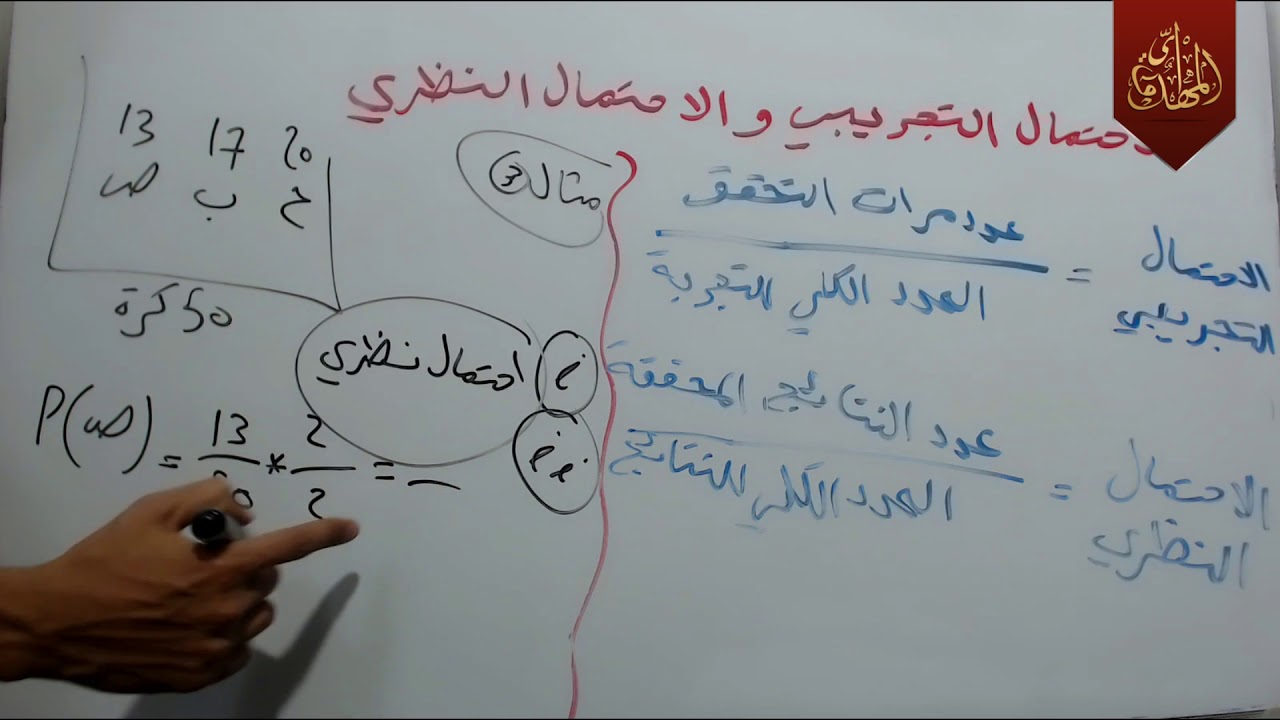 الاحتمال التجريبي والاحتمال النظري
الاحتمال التجريبي = عدد مرات التحقق / العدد الكلي للتجربة
الاحتمال النظري = عدد النتائج المحققة / العدد الكلي للنتائج
مثال 3
13 17 20
ص ب ح
50 كرة
احتمال نظري
P(ص) = 13/50 * 2/2 =
المهدى